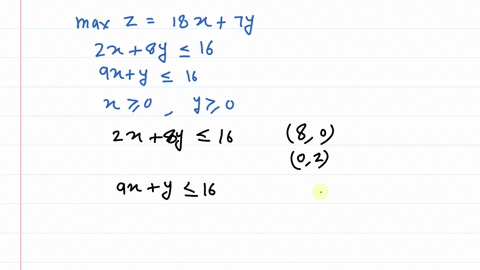 max Z = 18x + 7y
2x + 8y ≤ 16
9x + y ≤ 16
x ≥ 0 , y ≥ 0
2x + 8y ≤ 16 (8, 0)
(0, 2)
9x + y ≤ 16